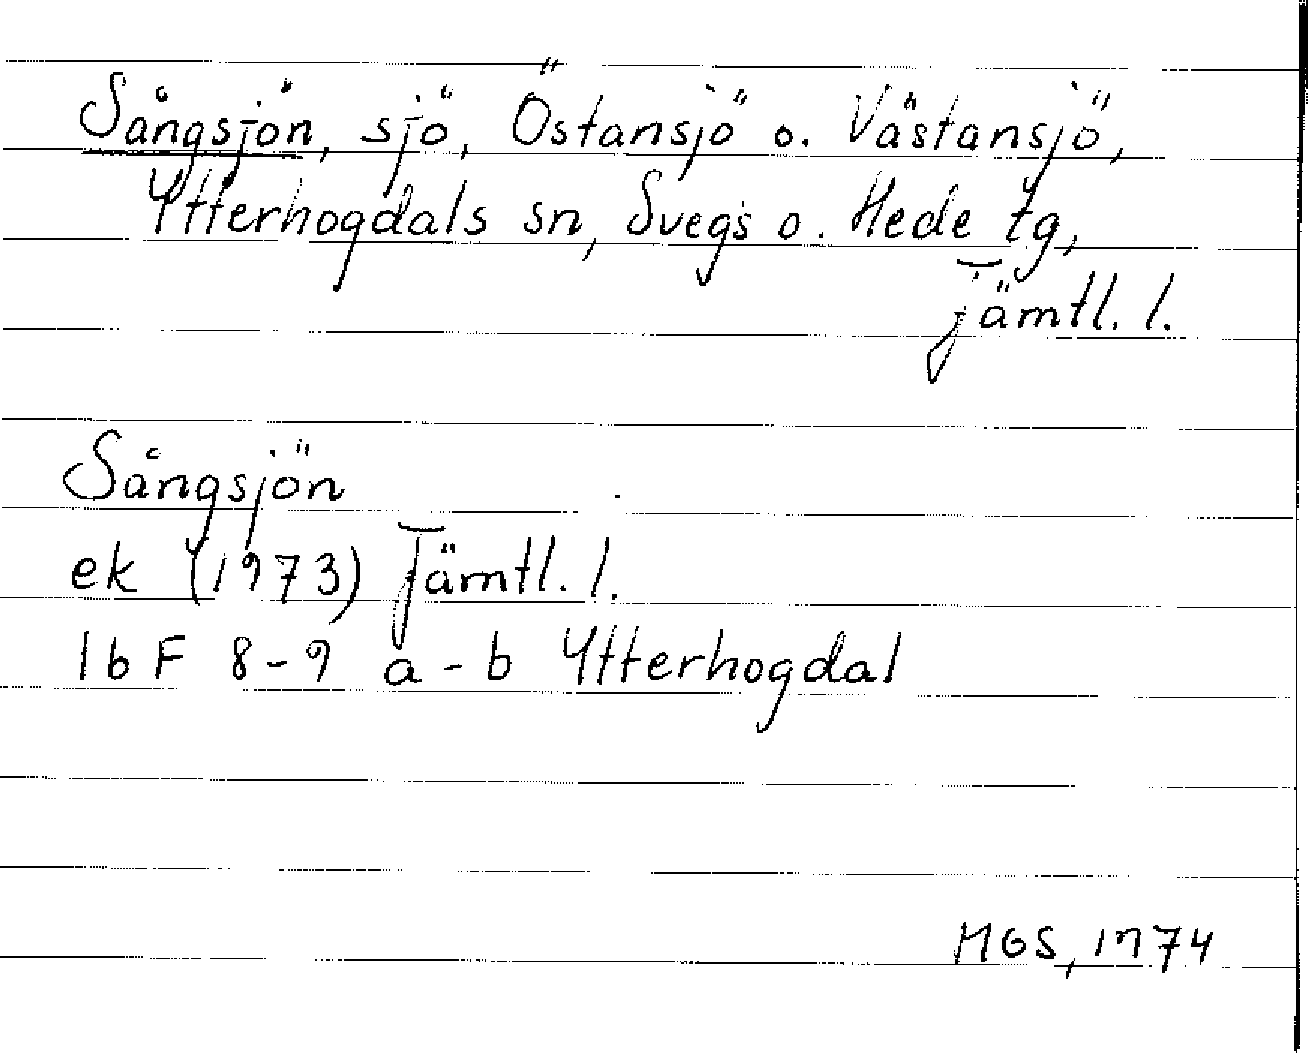 Sångsjön, sjö, Östansjö o. Västansjö,
Ytterhogdals sn, Svegs o. Hede tg,
Jämtl. l.
Sångsjön
ek (1973) Jämtl. l.
16F 8-9 a-b Ytterhogdal
MGS, 1974